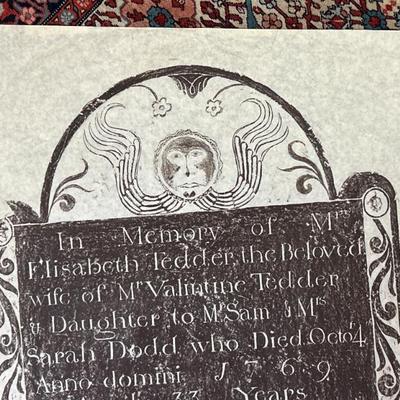 In Memory of Mrs
Elisabeth Tedder, the Beloved
wife of Mr Valintine Tedder
& Daughter to Mr Sam & Mrs
Sarah Dodd who Died Octo 4
Anno domini 1769
33 Years